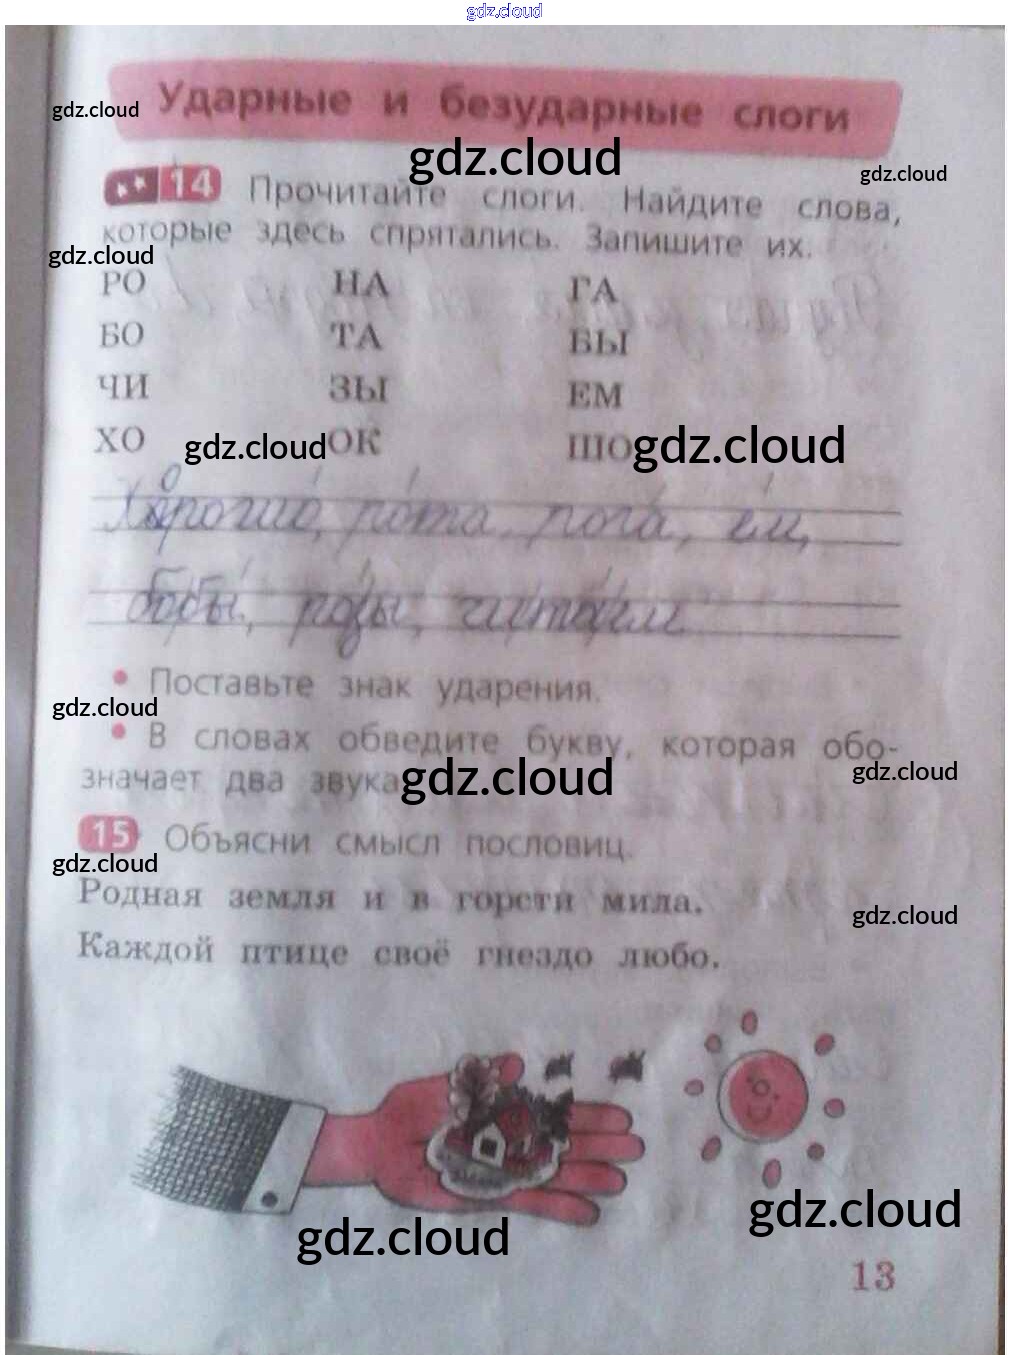 gdz.cloud
Ударные и безударные слоги
gdz.cloud
gdz.cloud
gdz.cloud
14 Прочитайте слоги. Найдите слова,
которые здесь спрятались. Запишите их.
gdz.cloud
РО НА ГА
БО ТА БЫ
ЧИ ЗЫ ЕМ
ХО ОК ШО
gdz.cloud
gdz.cloud
рота, рога, ем,
бобы, розы, читаем.
• Поставьте знак ударения.
gdz.cloud
• В словах обведите букву, которая обо-
значает два звука
gdz.cloud
gdz.cloud
15 Объясни смысл пословиц.
gdz.cloud
Родная земля и в горсти мила.
gdz.cloud
Каждой птице своё гнездо любо.
gdz.cloud
gdz.cloud
13